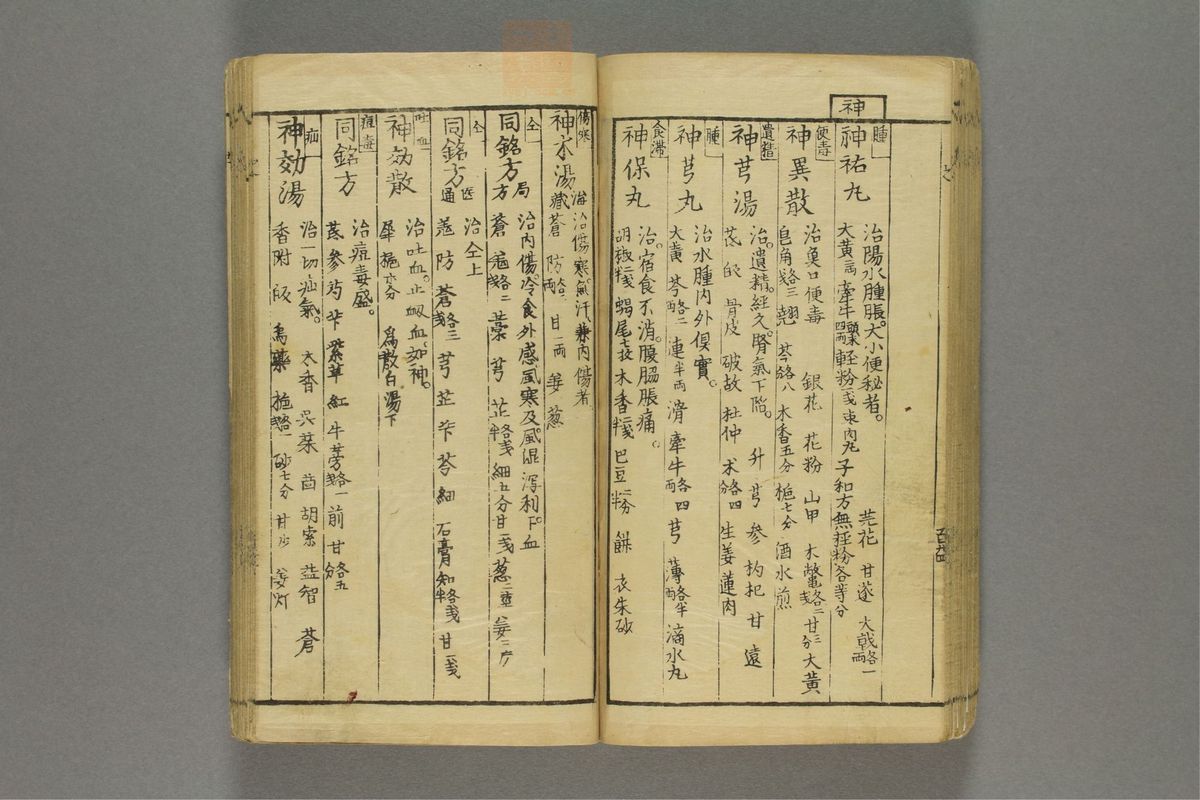 神
腫
神祐丸
治陽水腫脹。大小便秘者。
芫花 甘遂 大戟各一両
大黄二両 牽牛頭末四両 軽粉一戔 束内丸 子和方無軽粉各等分
便毒
神異散
治魚口便毒 銀花 花粉 山甲 木鱉各二戔 甘三分 大黄
皂角各三戔 翹 芩各八分 木香五分 梔七分 酒水煎
遺精
神芎湯
治遺精。経久。腎気下陥。 升 芎 参 枸杞 甘 遠
芪 皈 骨皮 破故 杜仲 朮各四分 生姜 蓮肉
腫
神芎丸
治水腫内外俱實。
大黄 芩各二両 連半両 滑 牽牛各四両 芎 薄各半両 滴水丸
食滞
神保丸
治宿食不消。腹脇脹痛。
胡椒二戔半 蝎尾七枚 木香二戔半 巴豆二分半 餅 衣朱砂
傷寒
神朮湯
治傷寒無汗兼内傷者
蒼 防各二両 甘一両 姜 葱
仝
同銘方 局方
治内傷。冷食外感風寒及風湿瀉利。下血
蒼 各二戔 藁 芎 芷各戔半 細五分 甘一戔 葱二莖 姜二片
仝
同銘方 医通
治仝上
羌 防 蒼各三戔 芎 芷 芐 芩 細 石膏 知各戔半 甘一戔
吐血
神効散
治吐血。止衂血。如神。
犀 梔 等分 為散白湯下
痘毒
同銘方
治痘毒盛。
芪 参 芍 芐 紫草 紅 牛蒡各一戔 前 甘各五分
疝
神効湯
治一切疝気。 木香 呉茱 茴 胡索 益智 蒼
香附 皈 烏薬 梔各一戔 砂七分 甘少 姜 灯